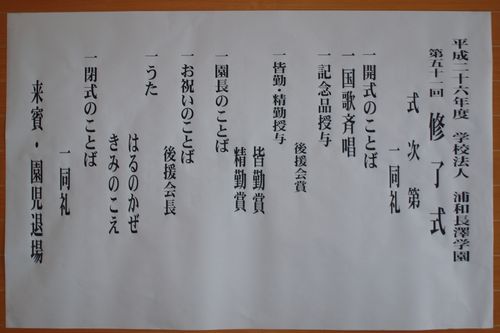 平成二十六年度　学校法人　浦和長澤学園
第五十一回　修了式
式次第
一同礼
一開式のことば
一国歌斉唱
一記念品授与
後援会賞
一皆勤・精勤授与
皆勤賞
精勤賞
一園長のことば
一お祝いのことば
後援会長
一うた
はるのかぜ
きみのこえ
一閉式のことば
一同礼
来賓・園児退場